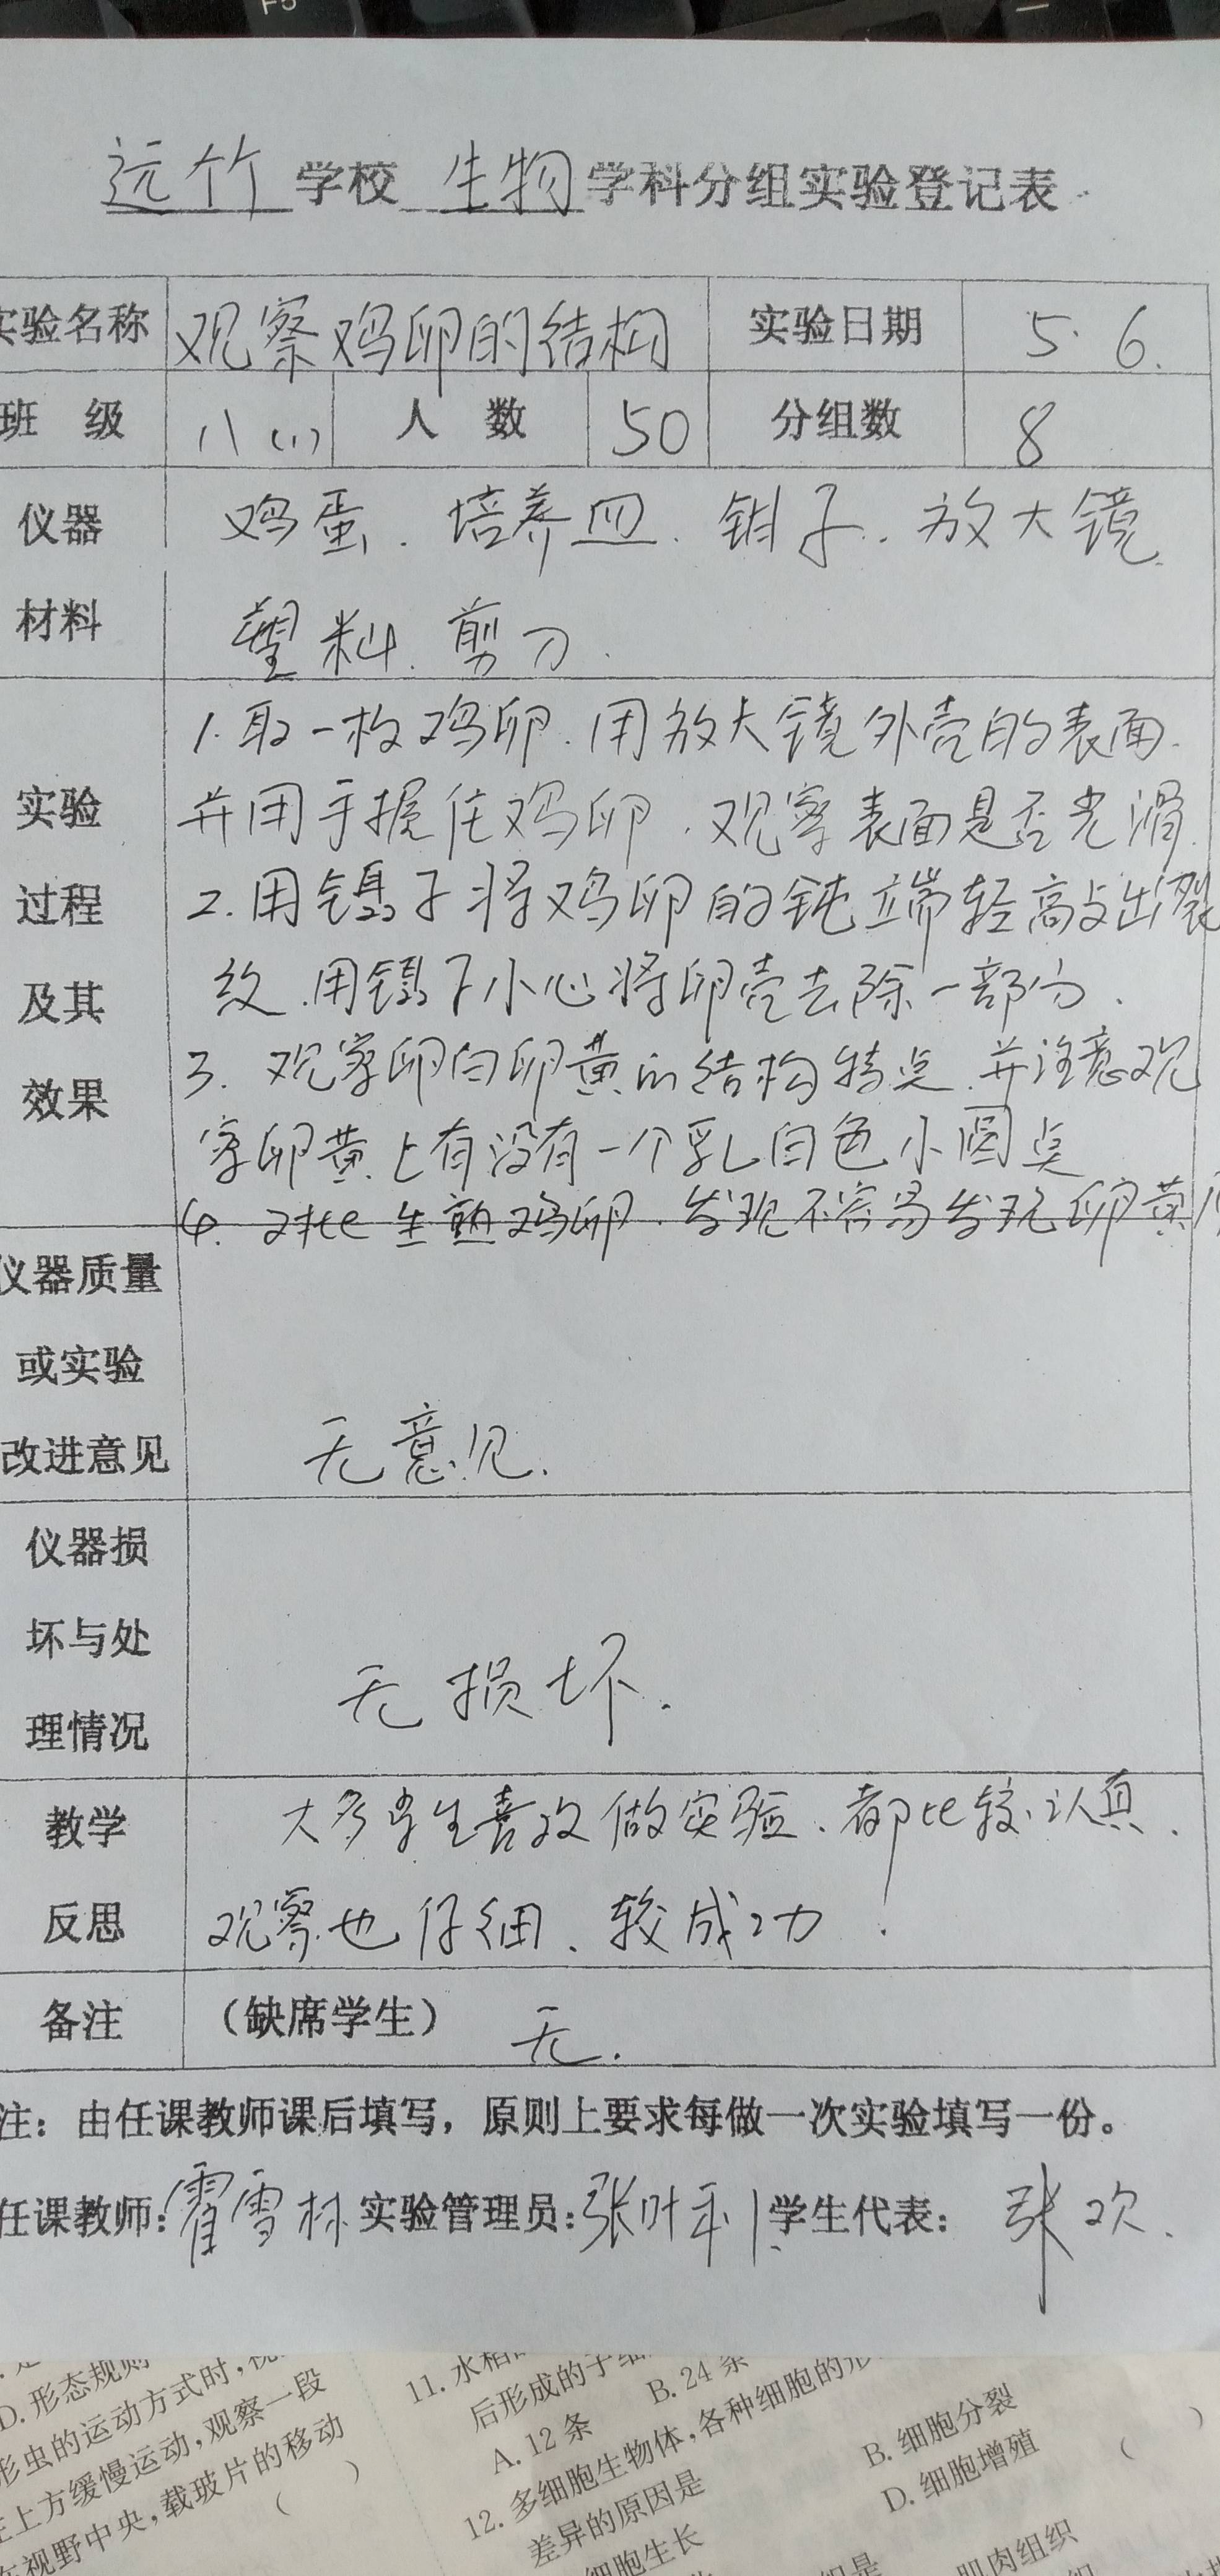 远竹 学校 生物 学科分组实验登记表
实验名称 观察鸡卵的结构 实验日期 5.6.
班 级 八(1) 人 数 50 分组数 8
仪器 鸡蛋、培养皿、钳子、放大镜
材料 塑料、剪刀.
1.取一枚鸡卵.用放大镜外壳的表面.
实验 并用手握住鸡卵,观察表面是否光滑.
过程 2.用镊子将鸡卵的钝端轻高文出裂
及其 纹.用镊子小心将卵壳去除一部分.
效果 3.观察卵白卵黄的结构特点.并注意观
察卵黄上有没有一个乳白色小圆点
4.对比生熟鸡卵.发现不容易发现卵黄
仪器质量
或实验
改进意见 无意见.
仪器损
坏与处
理情况 无损坏.
教学 大多学生喜欢做实验、都比较认真.
反思 观察也仔细、较成功!
备注 (缺席学生) 无.
注:由任课教师课后填写,原则上要求每做一次实验填写一份。
任课教师:霍雪林 实验管理员:张叶 学生代表:张欢.
D.形态规则
形虫的运动方式时,
上方缓慢运动,观察一段
视野中央,载玻片的移动
11.水稻
后形成的子细
A.12条 B.24条
12.多细胞生物体,各种细胞的形
差异的原因是
细胞生长 B.细胞分裂
D.细胞增殖
肌肉组织